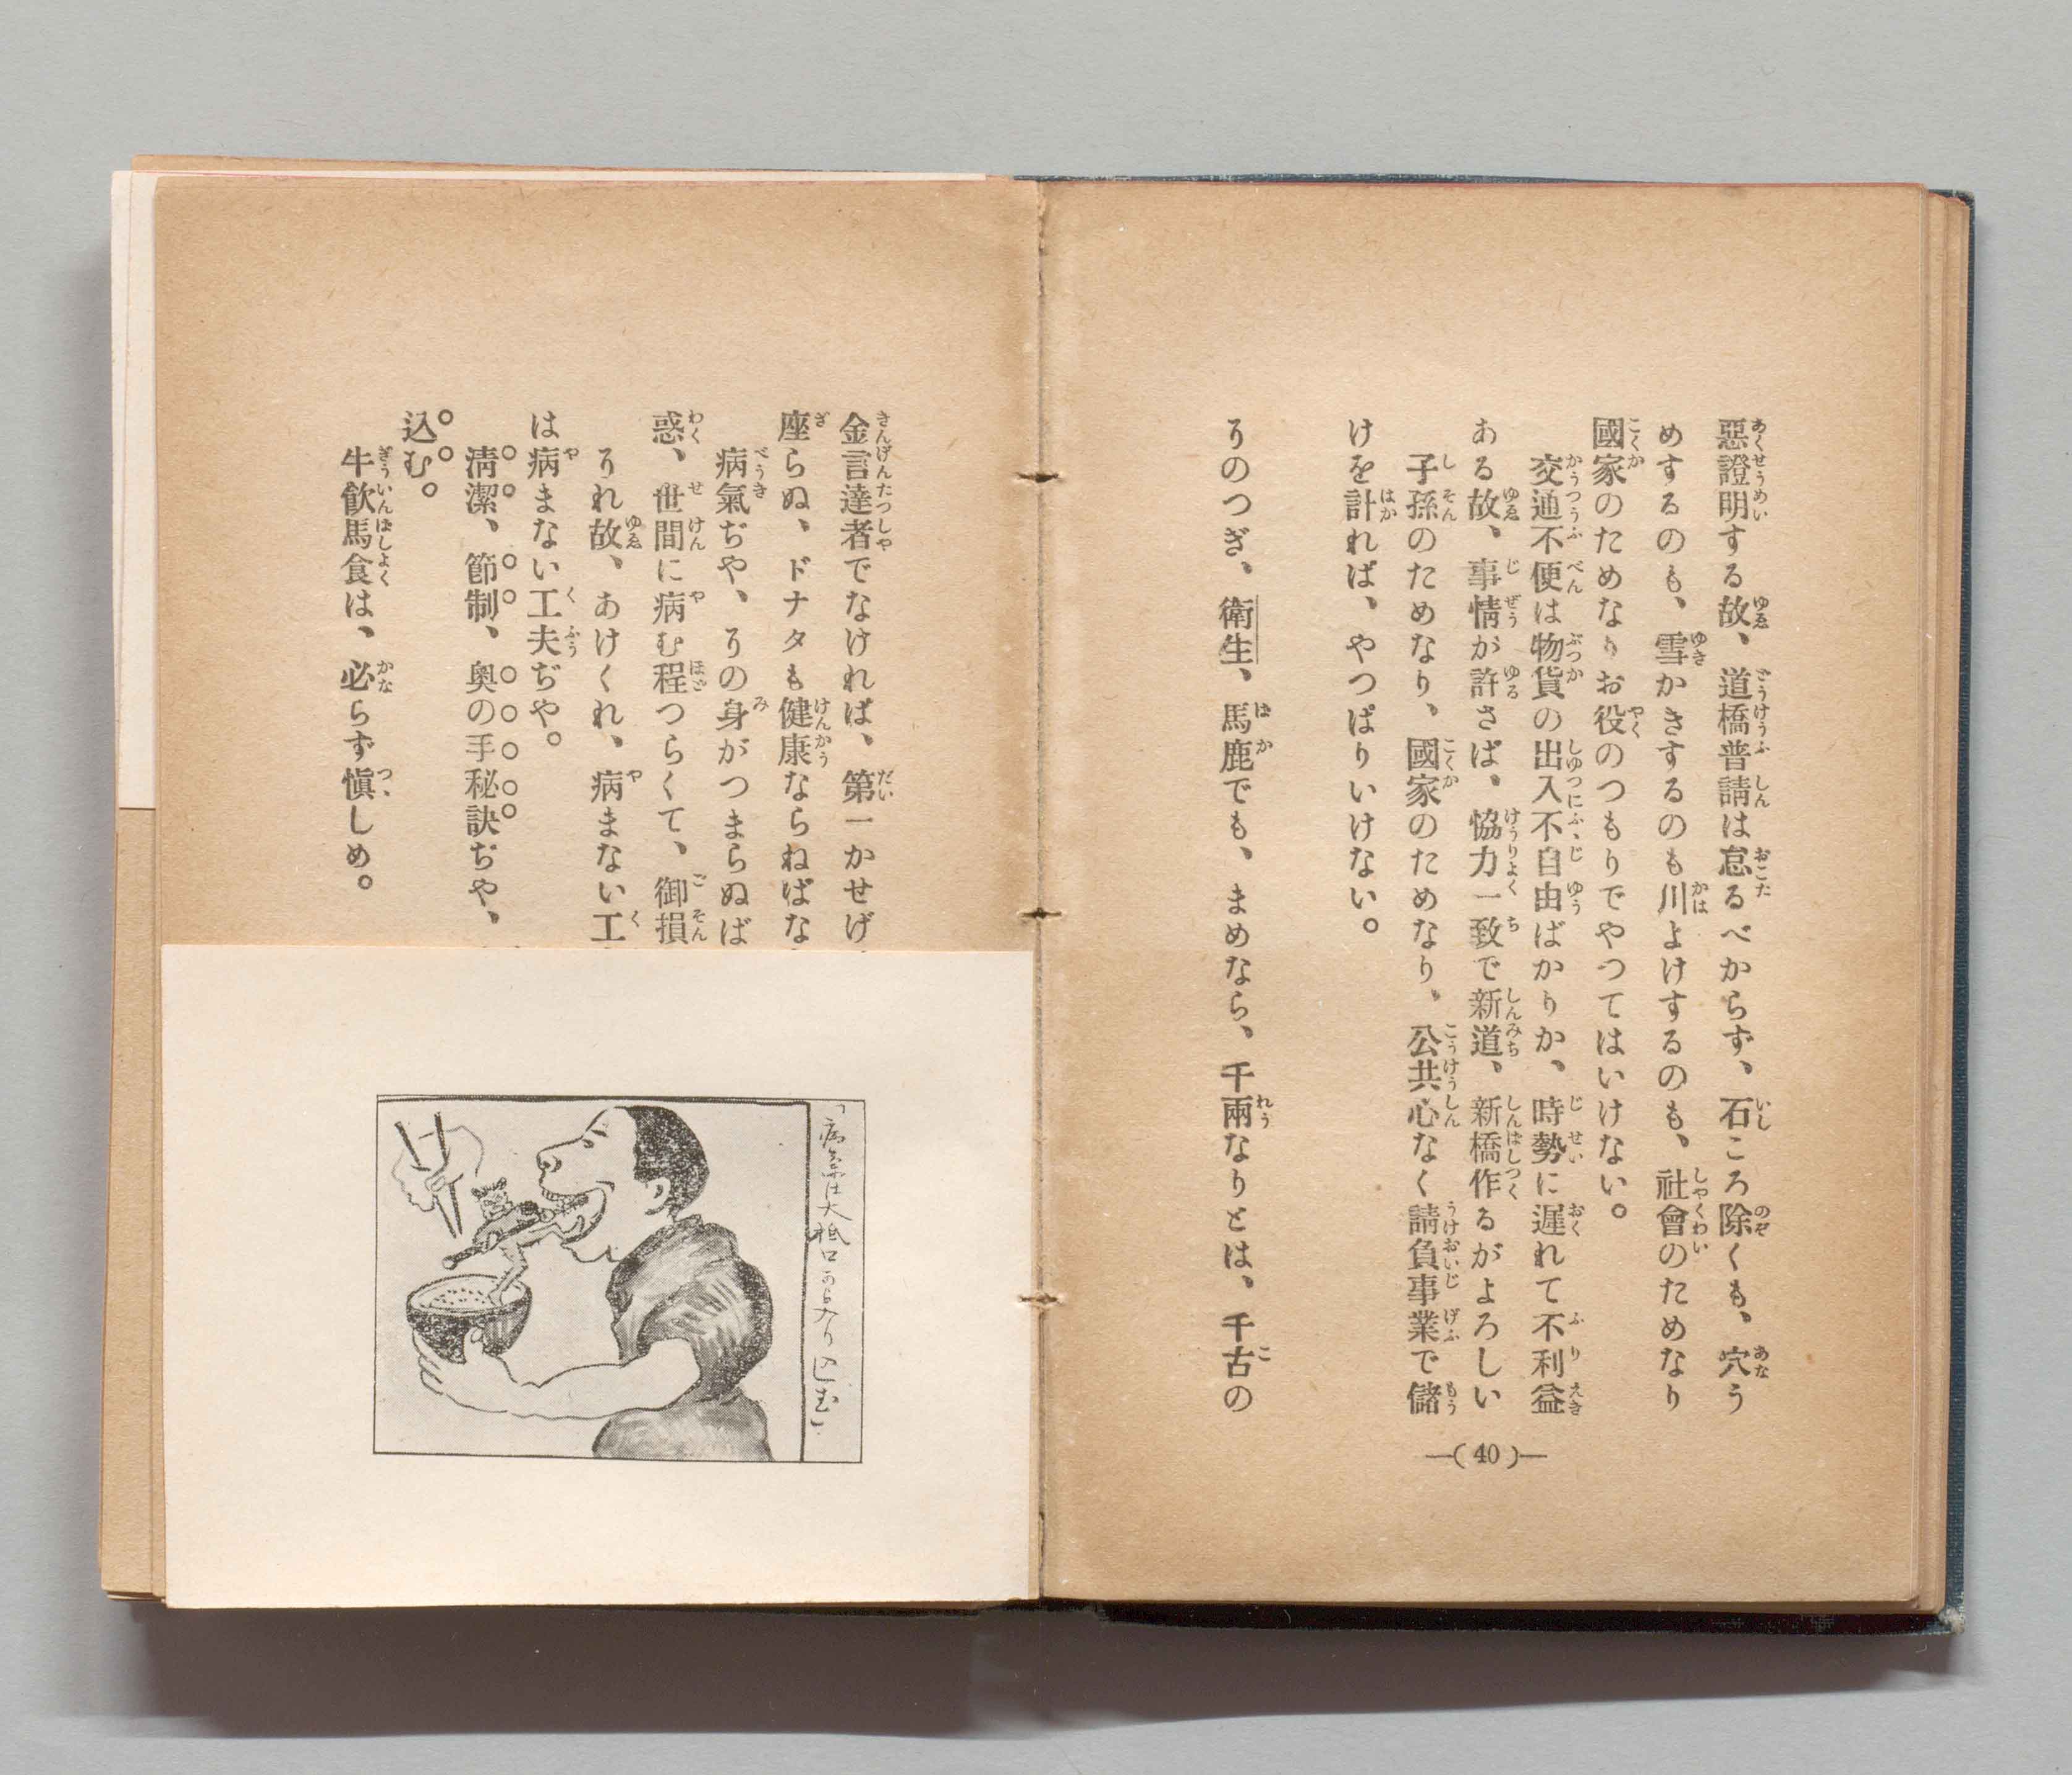 惡證明する故、道橋普請は怠るべからず、石ころ除くも、穴う
めするのも、雪かきするのも川よけするのも、社會のためなり
國家のためなりお役のつもりでやつてはいけない。
交通不便は物貨の出入不自由ばかりか、時勢に遅れて不利益
ある故、事情が許さば、協力一致で新道、新橋作るがよろしい
子孫のためなり、國家のためなり、公共心なく請負事業で儲
けを計れば、やつぱりいけない。
りのつぎ、衛生、馬鹿でも、まめなら、千兩なりとは、千古の
—( 40 )—
金言達者でなければ、第一かせげ
座らぬ、ドナタも健康ならねばな
病氣ぢや、りの身がつまらぬば
惑、世間に病む程つらくて、御損
りれ故、あけくれ、病まない工
は病まない工夫ぢや。
淸潔、節制、奥の手秘訣ぢや、
込む。
牛飮馬食は、必らず愼しめ。
「病氣は大抵口から入り込む」